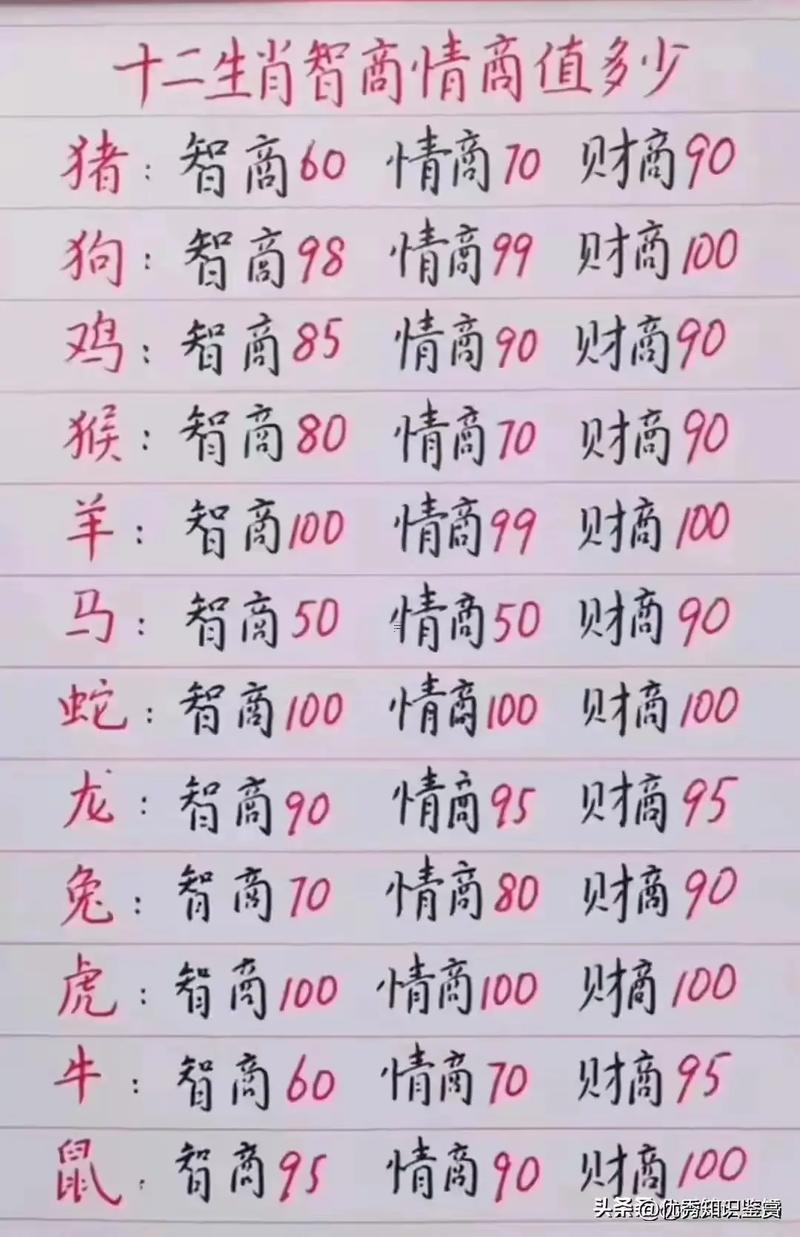 十二生肖智商情商值多少
猪：智商60 情商70 财商90
狗：智商98 情商99 财商100
鸡：智商85 情商90 财商90
猴：智商80 情商70 财商90
羊：智商100 情商99 财商100
马：智商50 情商50 财商90
蛇：智商100 情商100 财商100
龙：智商90 情商95 财商95
兔：智商70 情商80 财商90
虎：智商100 情商100 财商100
牛：智商60 情商70 财商95
鼠：智商95 情商90 财商100
头条 @优秀知识鉴赏